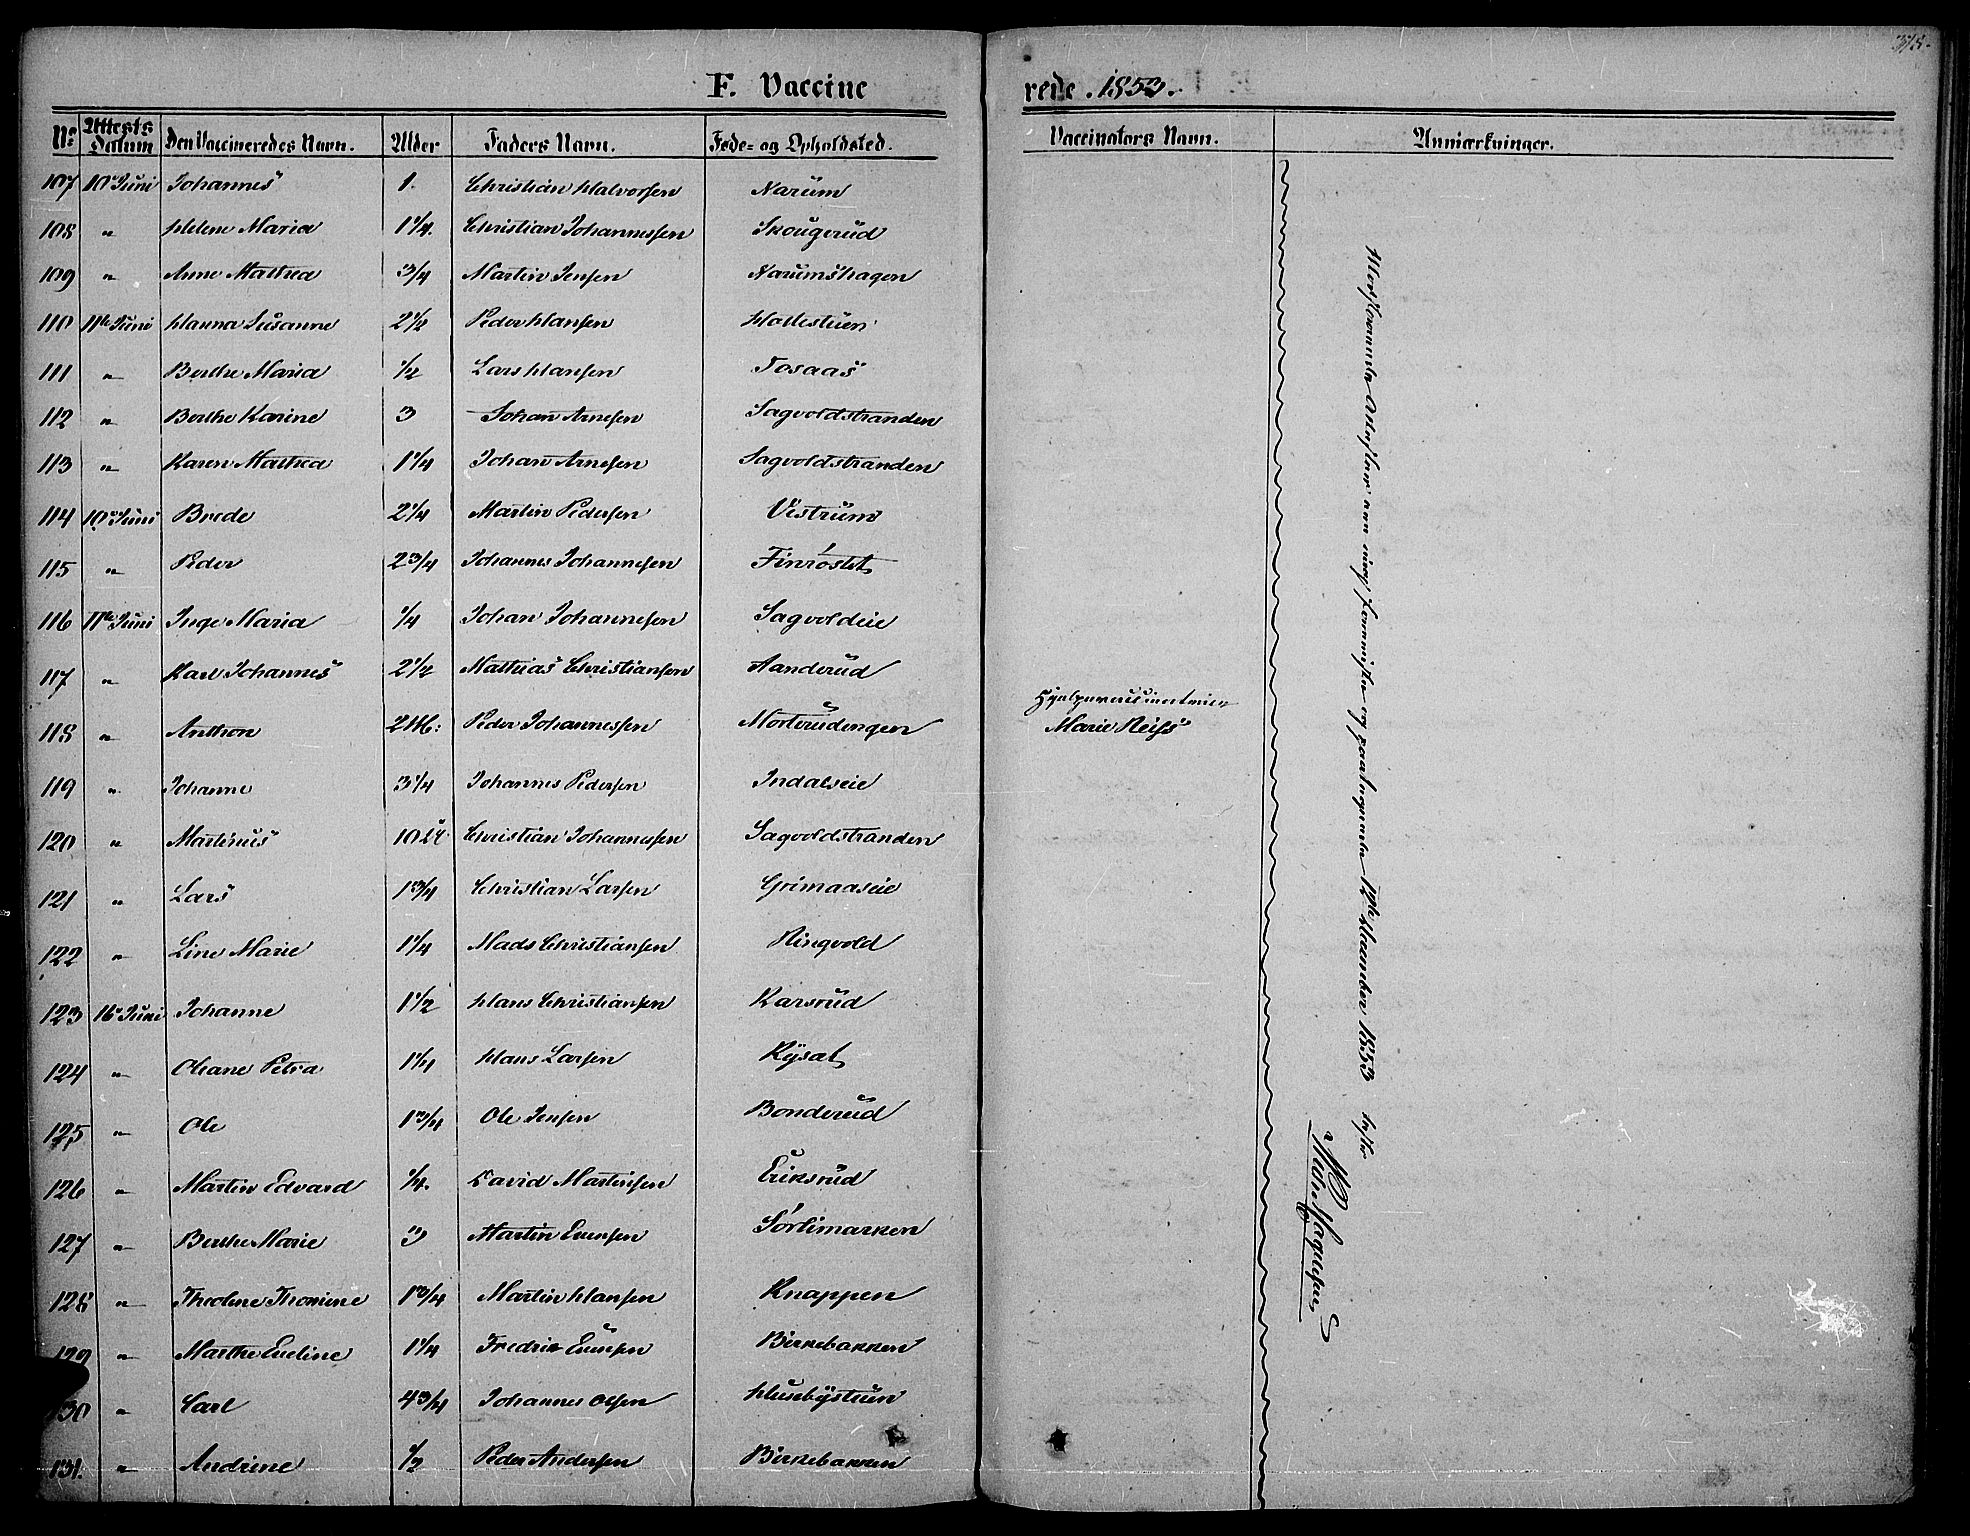 375.
F. Vaccinerede 1853.
No Attests Datum Den Vaccineredes Navn. Alder Faders Navn. Føde- og Opholdsted. Vaccinators Navn. Anmærkninger.
107 10de Juni Johannes 1. Christian Halvorsen Narum
108 " Helene Maria 1 1/4. Christian Johannessen Skougerud
109 " Anne Mathea 3/4 Martin Jensen Narumshagen
110 11te Juni Hanna Susanne 2 1/2 Peder Hansen Hollestuen
111 " Berthe Maria 1/2 Lars Hansen Tosaas
112 " Berthe Karine 3 Johan Arnesen Sagvoldstranden
113 " Karen Mathea 1 1/4 Johan Arnesen Sagvoldstranden
114 10de Juni Brede 2 1/4 Martin Pedersen Vestrum
115 " Peder 2 3/4 Johannes Johannesen Finröstet
116 11te Juni Inge Maria 1/4 Johan Johannesen Sagvoldeie
117 " Karl Johannes 2 1/2 Mathias Christiansen Aanderud
118 " Anthon 2 M: Peder Johannessen Morterudengen
119 " Johanne 3 1/4 Johannes Pedersen Indalseie
120 " Martinus 10 Christian Johannessen Sagvoldstranden
121 " Lars 1 3/4 Christian Larsen Grimaaseie
122 " Line Marie 1 1/4 Mads Christiansen Ringvold
123 16de Juni Johanne 1 1/2 Hans Christiansen Karsrud
124 " Oleane Petra 1 1/4 Hans Larsen Rysat
125 " Ole 1 3/4 Ole Jensen Bonderud
126 " Martin Edvard 1/4. David Martinsen Eriksrud
127 " Berthe Marie 3 Martin Evensen Sörlimarken
128 " Theoline Thomine 1 3/4 Martin Hansen Knappen
129 " Marthe Eveline 1 1/4 Fredrik Evensen Birkebakken
130 " Carl 4 3/4 Johannes Olsen Husebystuen
131. " Andrine 1/2 Peder Andersen Birkebakken
Marie Reiss
1853